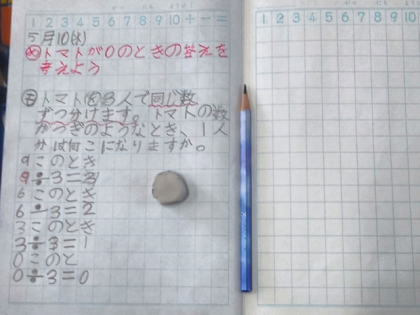 1 2 3 4 5 6 7 8 9 10 + - =
5月10(水)
めトマトが0のときの答えを
考えよう
もトマトを3人で同じ数
ずつ分けます。トマトの数
がつぎのようなとき、1人
分は何こになりますか。
9このとき
9÷3=3
6このとき
6÷3=2
3このとき
3÷3=1
0このと
0÷3=0
1 2 3 4 5 6 7 8 9 10 + - =